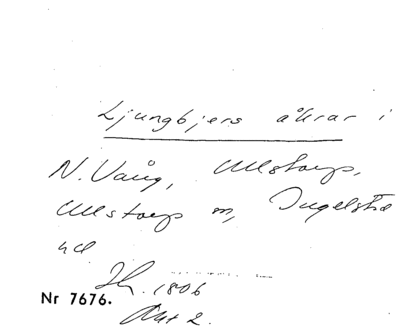 Ljungbjers åkrar i
N. Vång, Ullstorp,
Ullstorp m, Ingelsta
hd
Th. 1806
Akt 2.
Nr 7676.